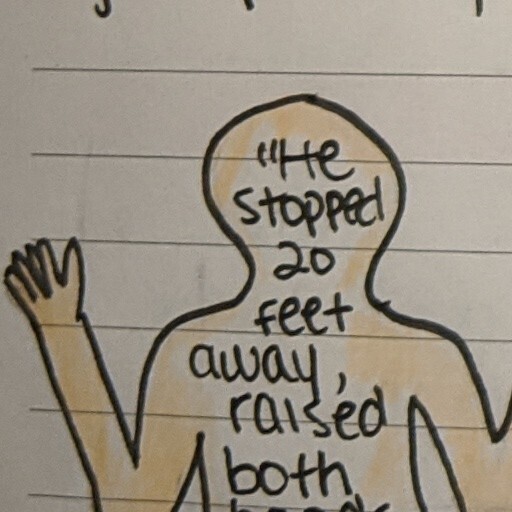 "He
stopped
20
feet
away,
raised
both